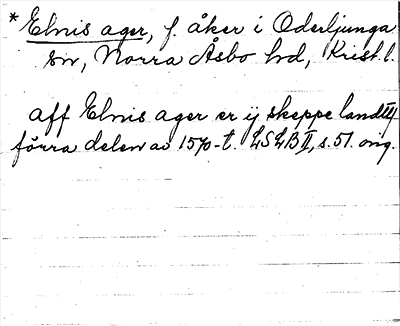 * Elnis ager, f. åker i Oderljunga
sn, Norra Åsbo hd, Krist. l.
aff Elnis ager er ij skeppe land III
förra delen av 1570-t. LSLB II, s. 51. orig.